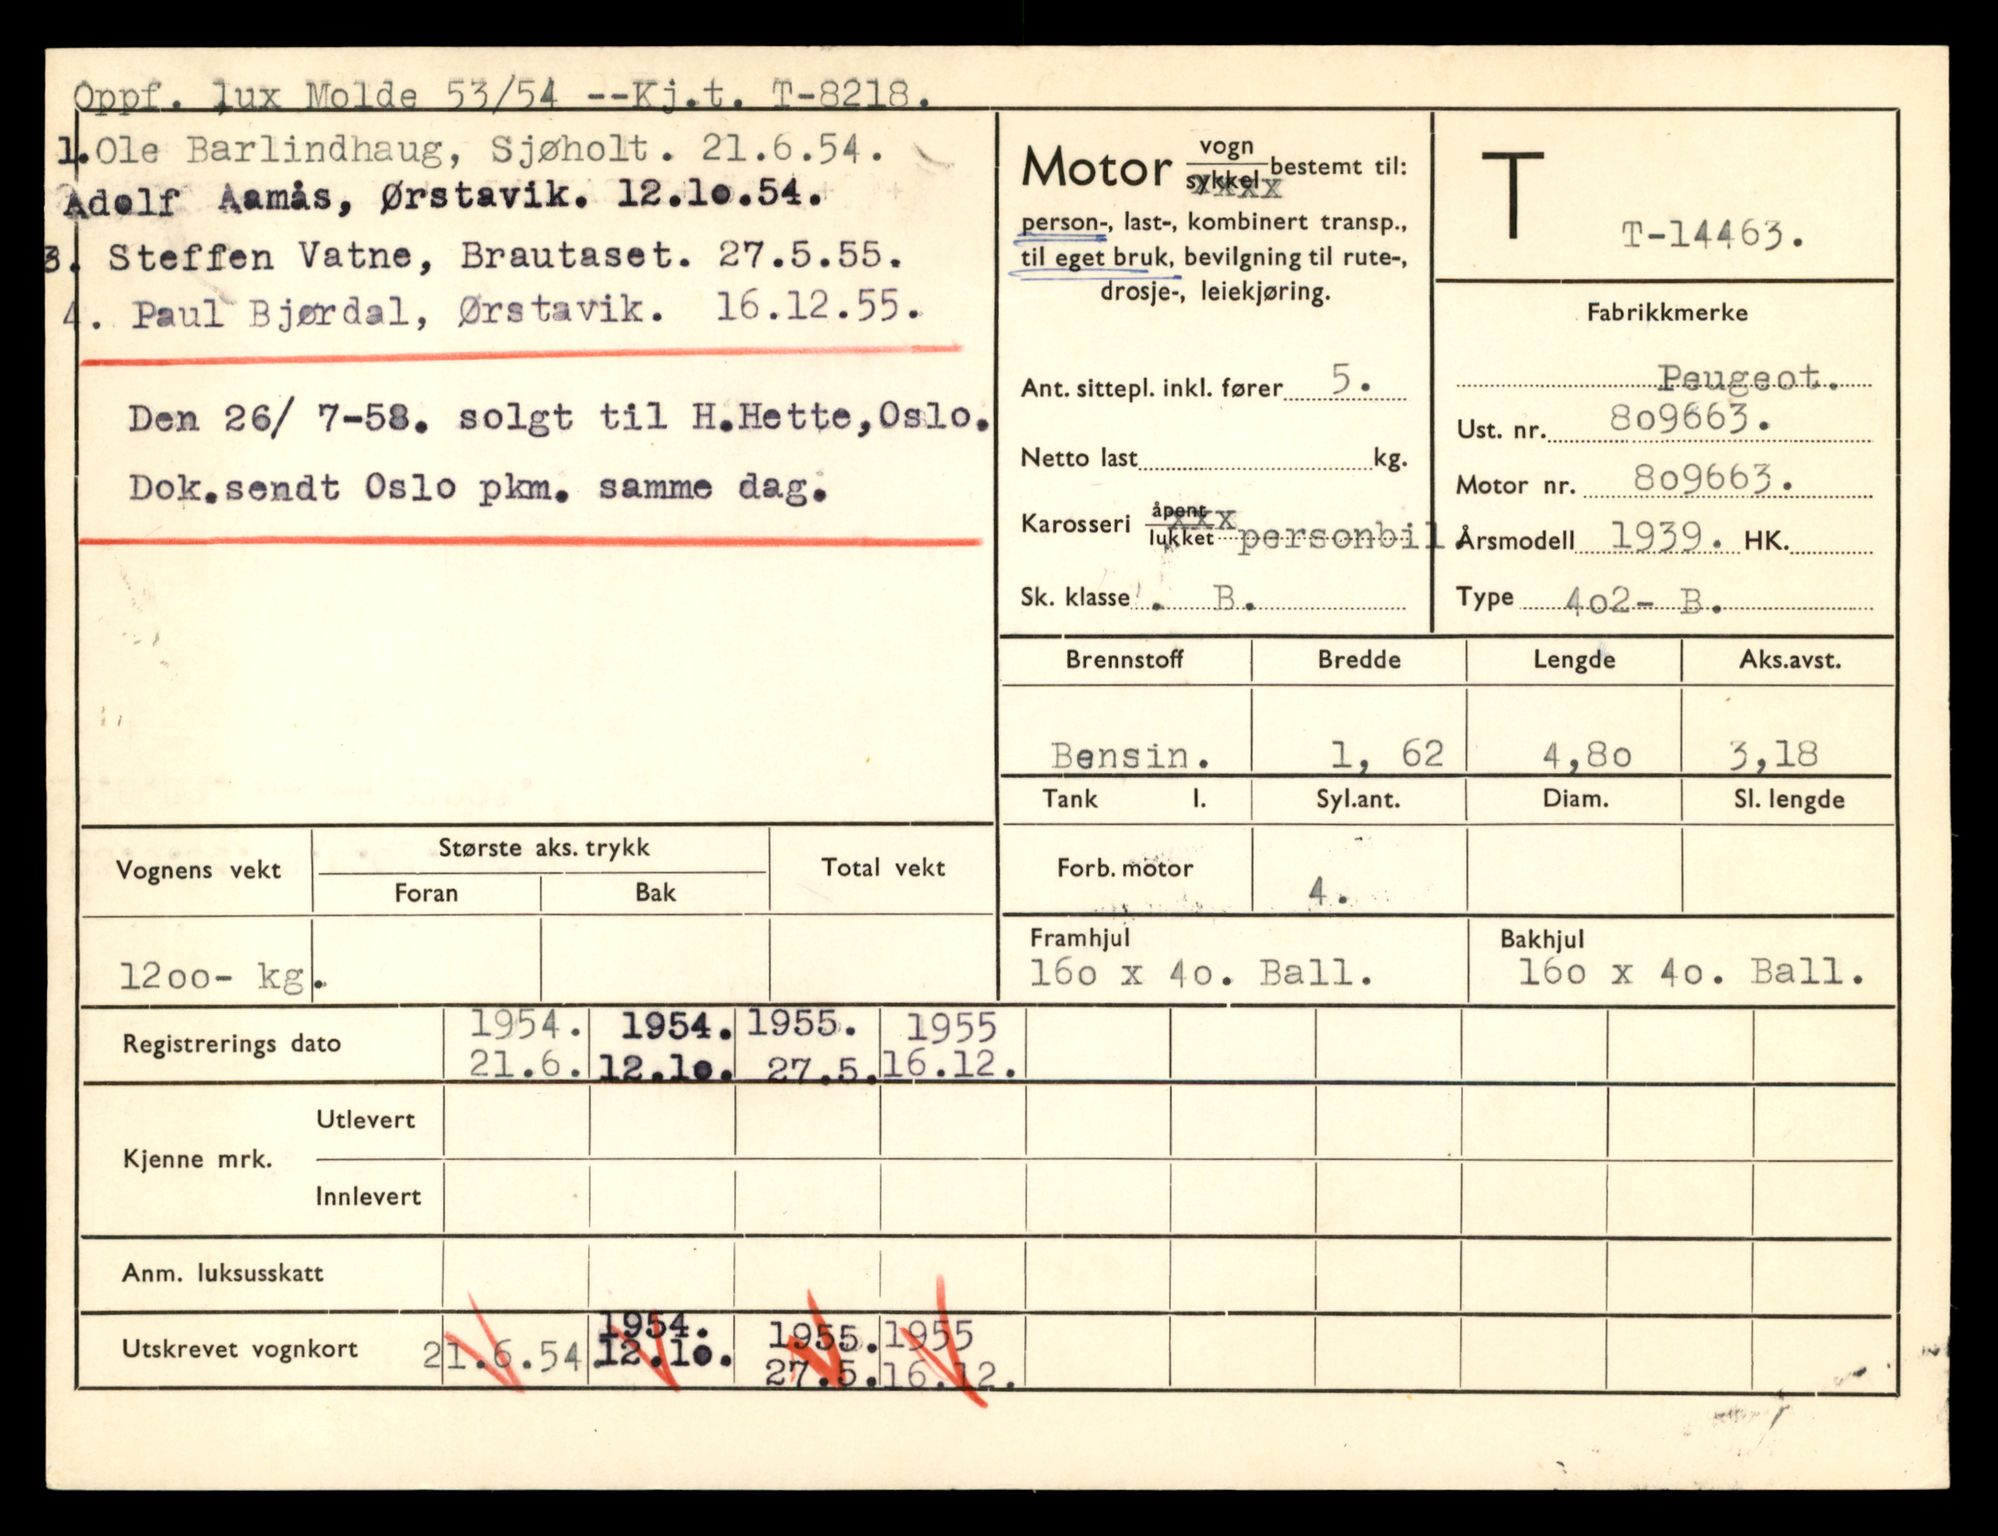 Oppf. lux Molde 53/54 --Kj.t. T-8218.
1.Ole Barlindhaug, Sjøholt. 21.6.54.
Adolf Aamås, Ørstavik. 12.10.54.
3. Steffen Vatne, Brautaset. 27.5.55.
4. Paul Bjørdal, Ørstavik. 16.12.55.
Den 26/ 7-58. solgt til H.Hette,Oslo.
Dok.sendt Oslo pkm. samme dag.
Motor vogn sykkel xxxx bestemt til:
person-, last-, kombinert transp.,
til eget bruk, bevilgning til rute-,
drosje-, leiekjøring.
Ant. sittepl. inkl. fører 5.
Netto last kg.
Karosseri åpent xxx
lukket personbil.
Sk. klasse . B.
T
T-14463.
Fabrikkmerke
Peugeot.
Ust. nr. 809663.
Motor nr. 809663.
Årsmodell 1939. HK.
Type 402- B.
Brennstoff Bredde Lengde Aks.avst.
Bensin. 1, 62 4,80 3,18
Tank l. Syl.ant. Diam. Sl. lengde
Forb. motor 4.
Framhjul Bakhjul
160 x 40. Ball. 160 x 40. Ball.
Vognens vekt Største aks. trykk Total vekt
Foran Bak
1200- kg.
Registrerings dato 1954. 1954. 1955. 1955
21.6. 12.10. 27.5. 16.12.
Kjenne mrk. Utlevert
Innlevert
Anm. luksusskatt
Utskrevet vognkort 21.6.54. 1954. 1955. 1955
12.10. 27.5. 16.12.